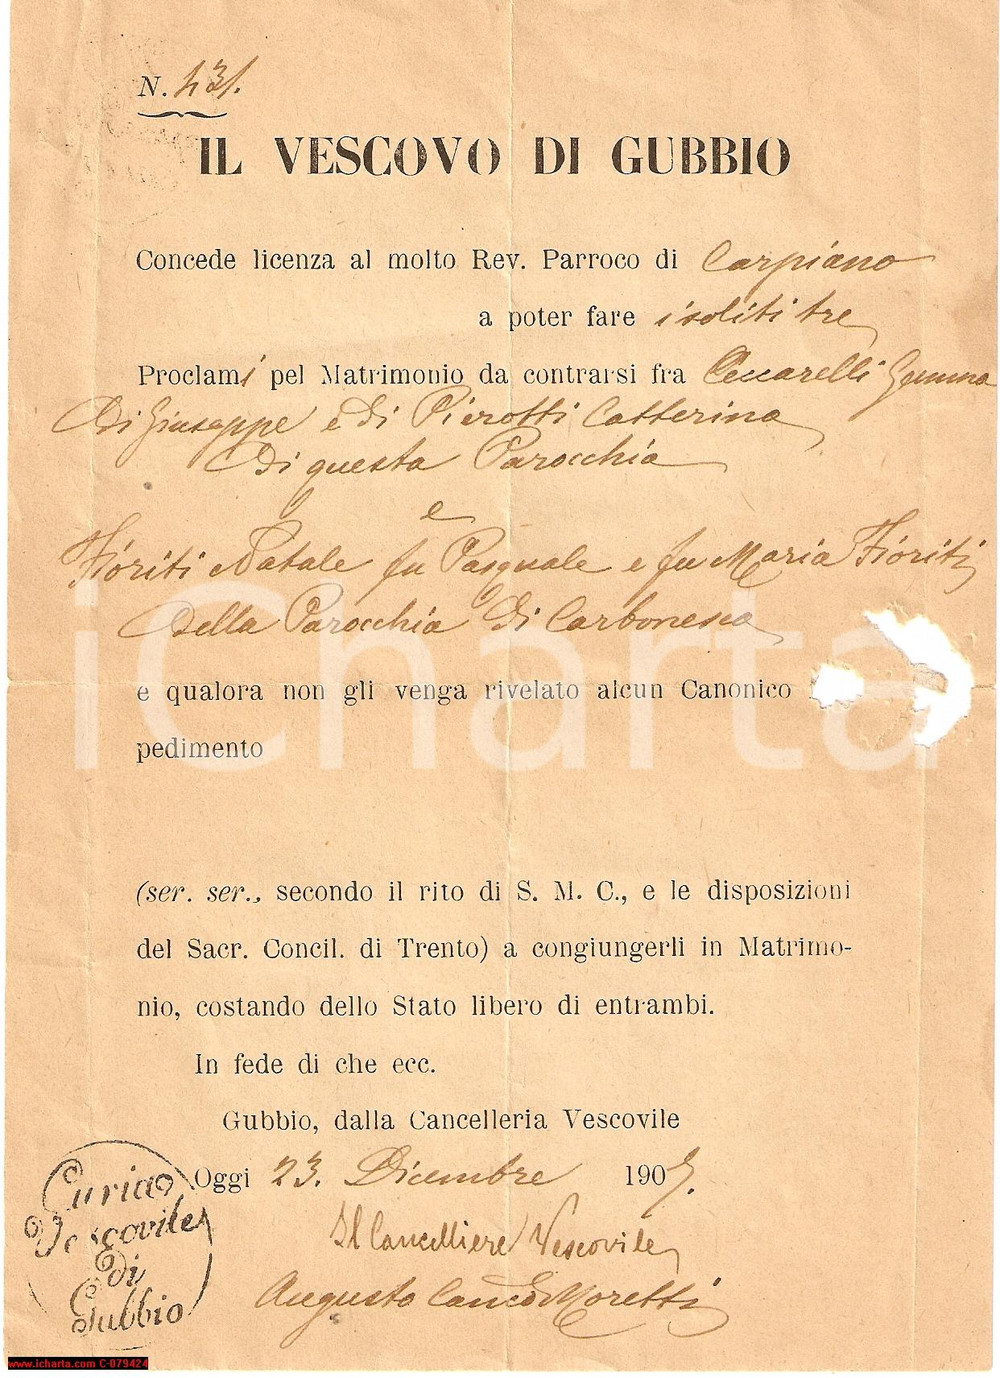 N. 431.
IL VESCOVO DI GUBBIO
Concede licenza al molto Rev. Parroco di Carpiano
a poter fare i soliti tre
Proclami pel Matrimonio da contrarsi fra Ceccarelli Gemma
Di Giuseppe e di Pierotti Catterina
Di questa Parocchia
e
Fioriti Natale fu Pasquale e fu Maria Fioriti
Della Parocchia di Carbonesca
e qualora non gli venga rivelato alcun Canonico
pedimento
(ser. ser., secondo il rito di S. M. C., e le disposizioni
del Sacr. Concil. di Trento) a congiungerli in Matrimo-
nio, costando dello Stato libero di entrambi.
In fede di che ecc.
Gubbio, dalla Cancelleria Vescovile
Oggi 23. Dicembre 1907.
Il Cancelliere Vescovile
Augusto Canco Moretti
Curia
Vescovile
di
Gubbio
iCharta
www.icharta.com C-079424